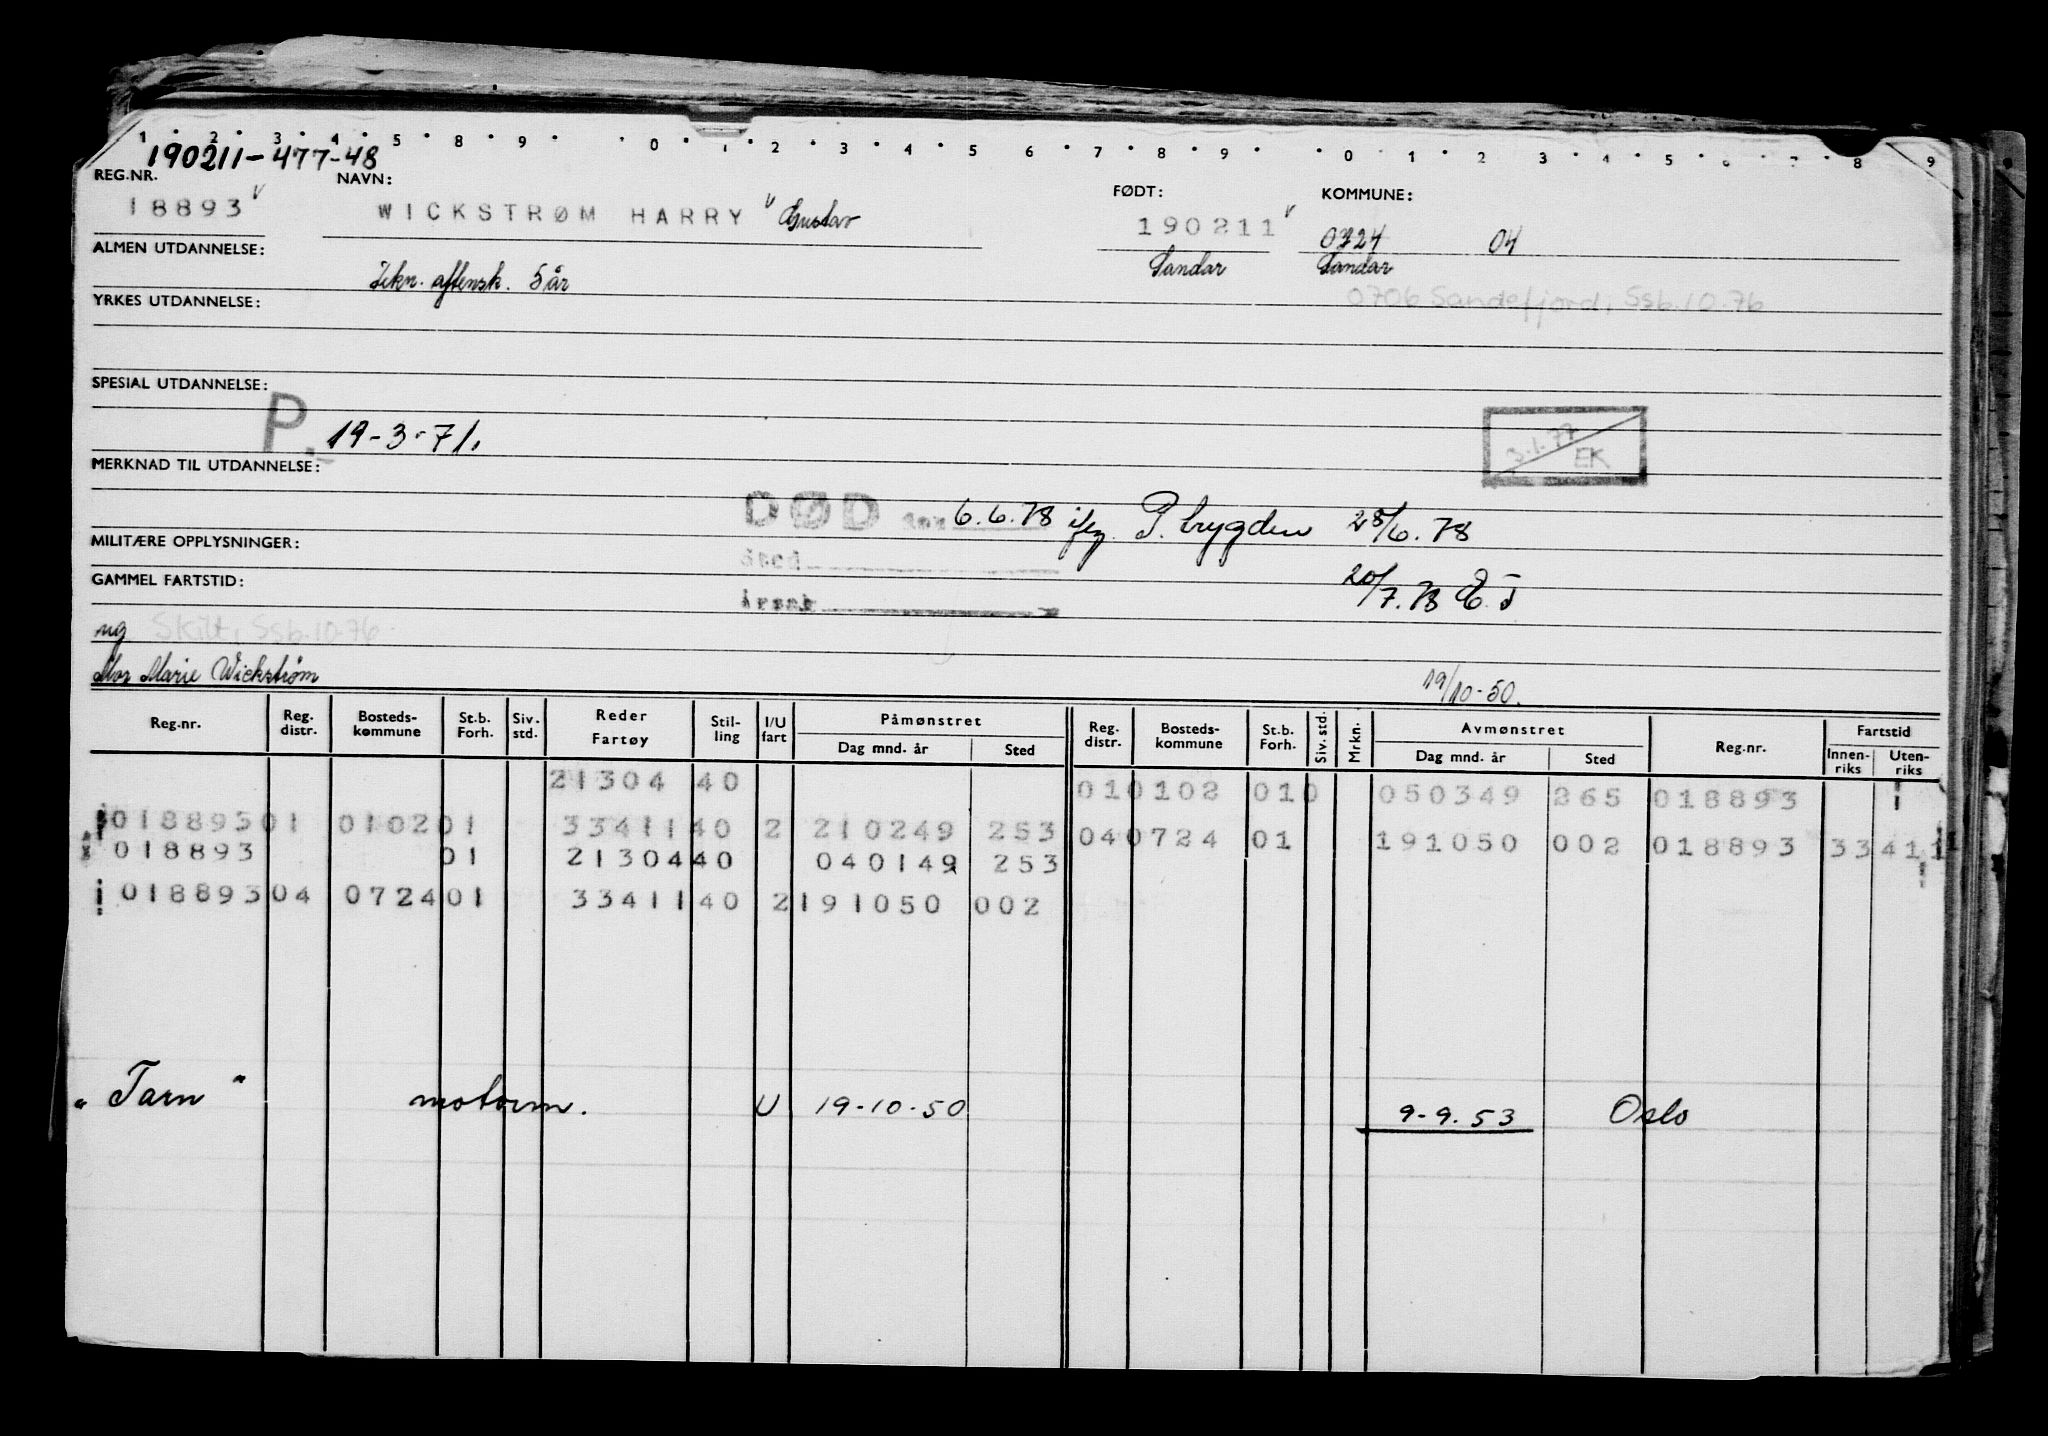 1 2 3 4 5 8 9 0 1 2 3 4 5 6 7 8 9 0 1 2 3 4 5 6 7 8 9
190211-477-48
REG.NR. NAVN: FØDT: KOMMUNE:
18893 WICKSTRØM HARRY Gustav 190211 0724 04
ALMEN UTDANNELSE: Tekn. aftensk. 5 år Sandar Sandar
YRKES UTDANNELSE: 0706 Sandefjord, Ssb.10.76
SPESIAL UTDANNELSE:
P. 19-3-71. 3.1.77 EK
MERKNAD TIL UTDANNELSE:
DØD den 6.6.78 iflg. P. trygden 28/6.78
MILITÆRE OPPLYSNINGER: Sted
GAMMEL FARTSTID: Årsak 20/7.78 E.J
ug Skilt, Ssb.10.76
Mor Marie Wickstrøm 19/10-50.
Reg.nr. Reg. distr. Bosteds-kommune St.b. Forh. Siv. std. Reder Fartøy Stil-ling I/U fart Påmønstret Dag mnd. år Sted Reg. distr. Bosteds-kommune St.b. Forh. Siv. std. Mrkn. Avmønstret Dag mnd. år Sted Reg.nr. Fartstid Innen-riks Uten-riks
21304 40 010102 010 050349 265 018893
018893 01 0102 01 33411 40 2 210249 253 040724 01 191050 002 018893 33411
018893 01 21304 40 040149 253
018893 04 0724 01 33411 40 2 191050 002
"Tarn" motorm. U 19-10-50 9-9.53 Oslo